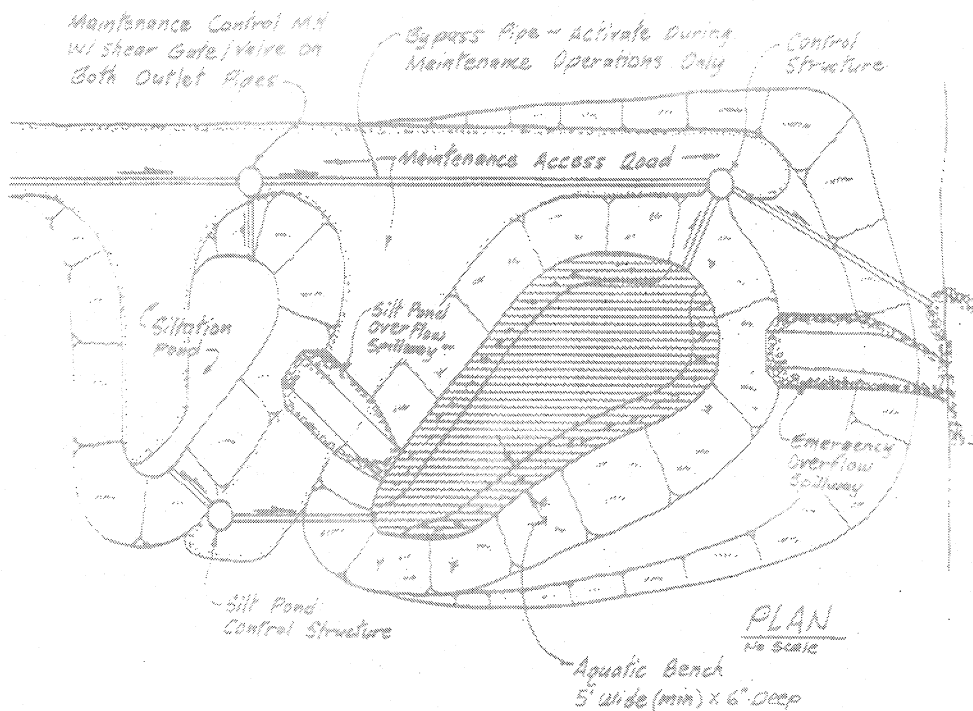 Maintenance Control MH
w/ Shear Gate/Valve on
Both Outlet Pipes
Bypass Pipe - Activate During
Maintenance Operations Only
Control
Structure
Maintenance Access Road
Siltation
Pond
Silt Pond
Overflow
Spillway
Emergency
Overflow
Spillway
Silt Pond
Control Structure
PLAN
No Scale
Aquatic Bench
5' Wide (min) x 6" Deep